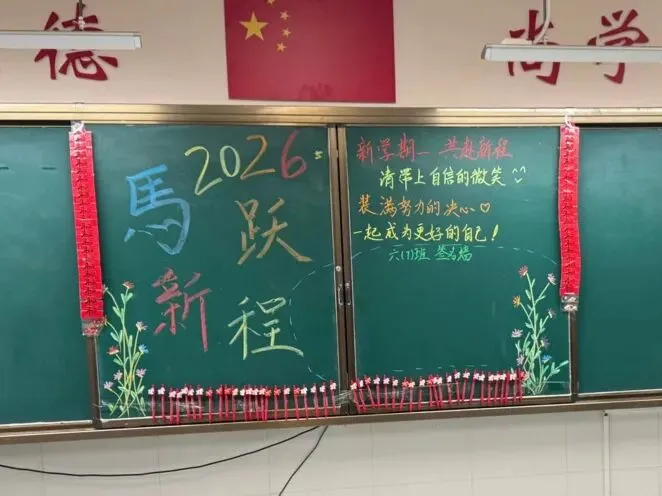 德
尚学
2026
馬跃
新程
新学期 共赴新程
请带上自信的微笑
装满努力的决心
一起成为更好的自己!
六(7)班 签名墙